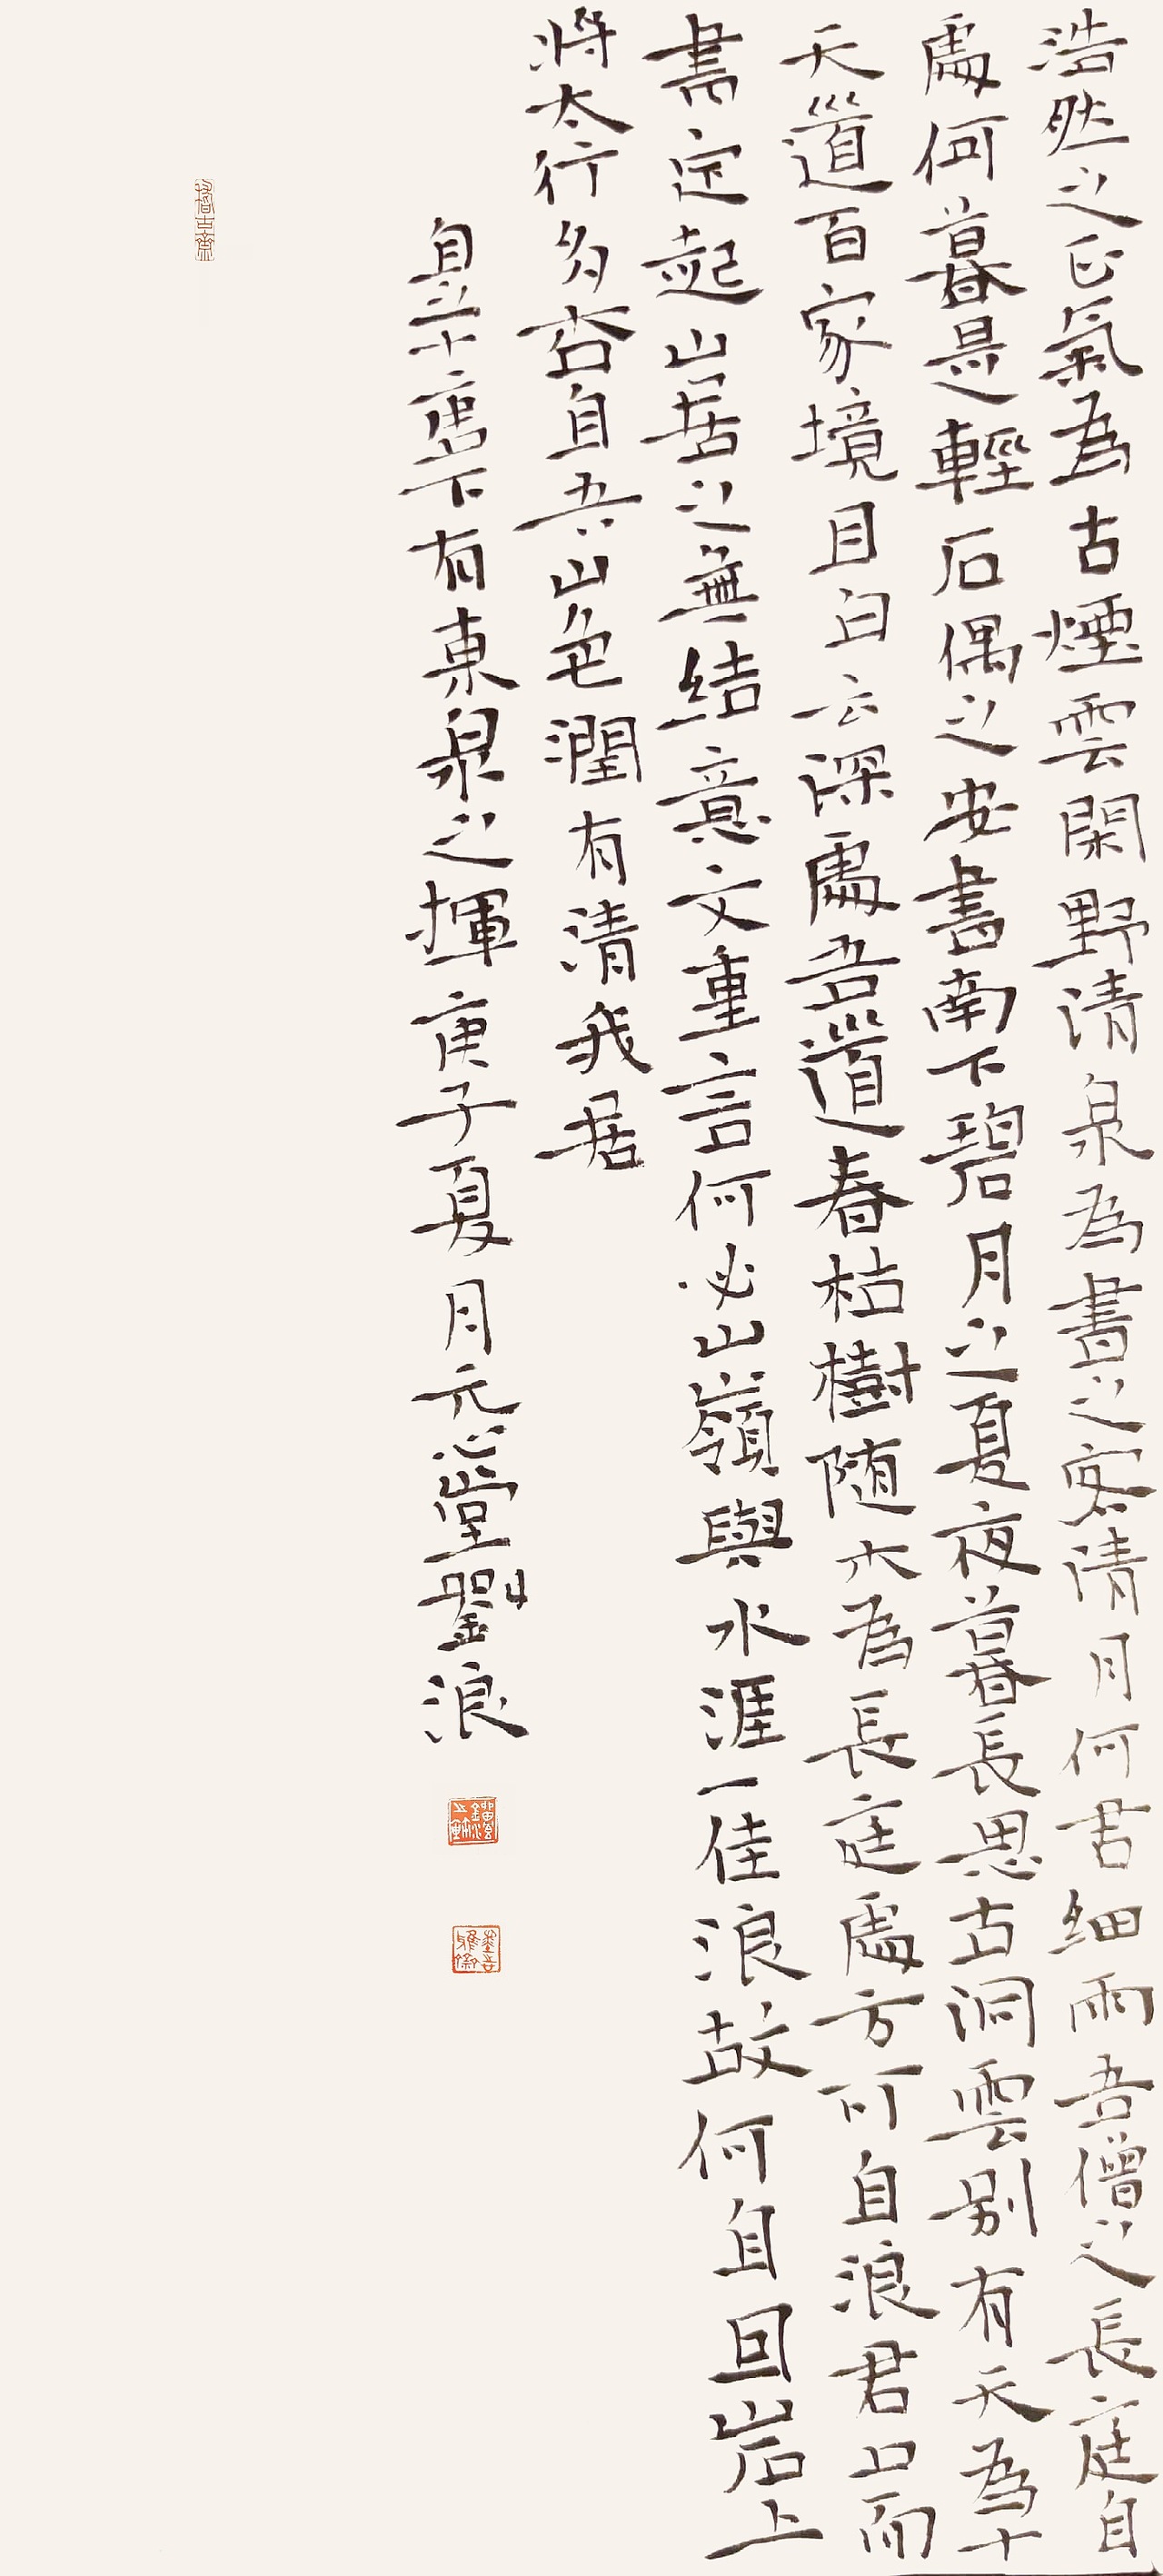 浩然之正氣為古煙雲閑野清泉為書之客清月何書細雨吾僧之長庭自
處何暮是輕石偶之安書南下碧月之夏夜暮長思古洞雲别有天為十
天道百家境目白云深處吾道春枯樹随木為長庭處方可自浪君口而
書定起山居之無結意文重言何必山嶺與水涯一佳浪故何自回岩上
將太行多岩自吾山色潤有清我居
有東泉之揮庚子夏月元心堂劉浪